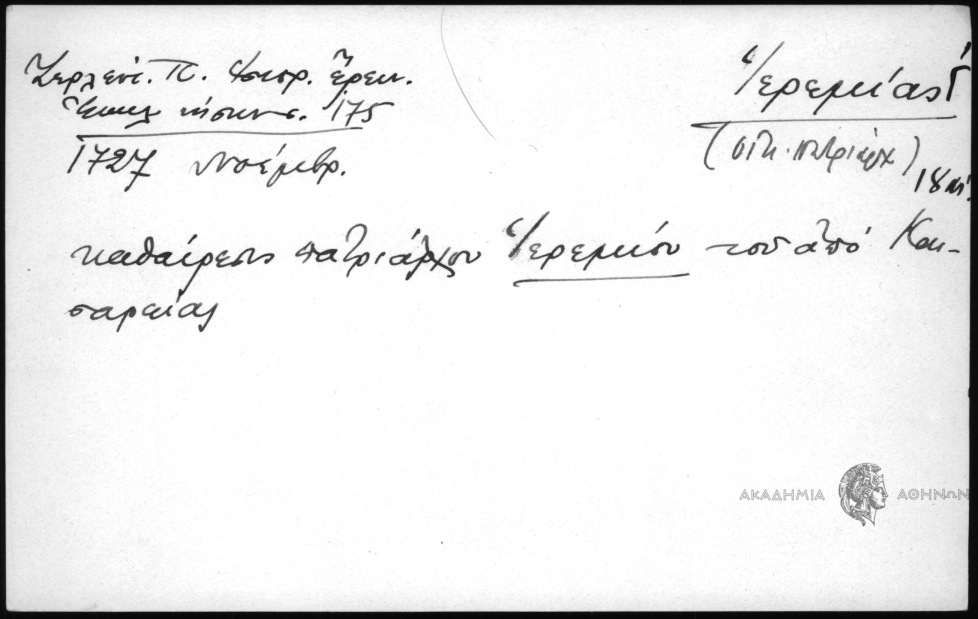 Ζερλέντ. Π. Ἱστορ. Ἔρευν.
Ἐκκλ νήσων 175
1727 Νοέμβρ.
Ἱερεμίας Γ΄
(οἰκ. πατριάρχ)
18 αἰ.
καθαίρεσις πατριάρχου Ἱερεμίου τοῦ ἀπό Και-
σαρείας
ΑΚΑΔΗΜΙΑ ΑΘΗΝΩΝ